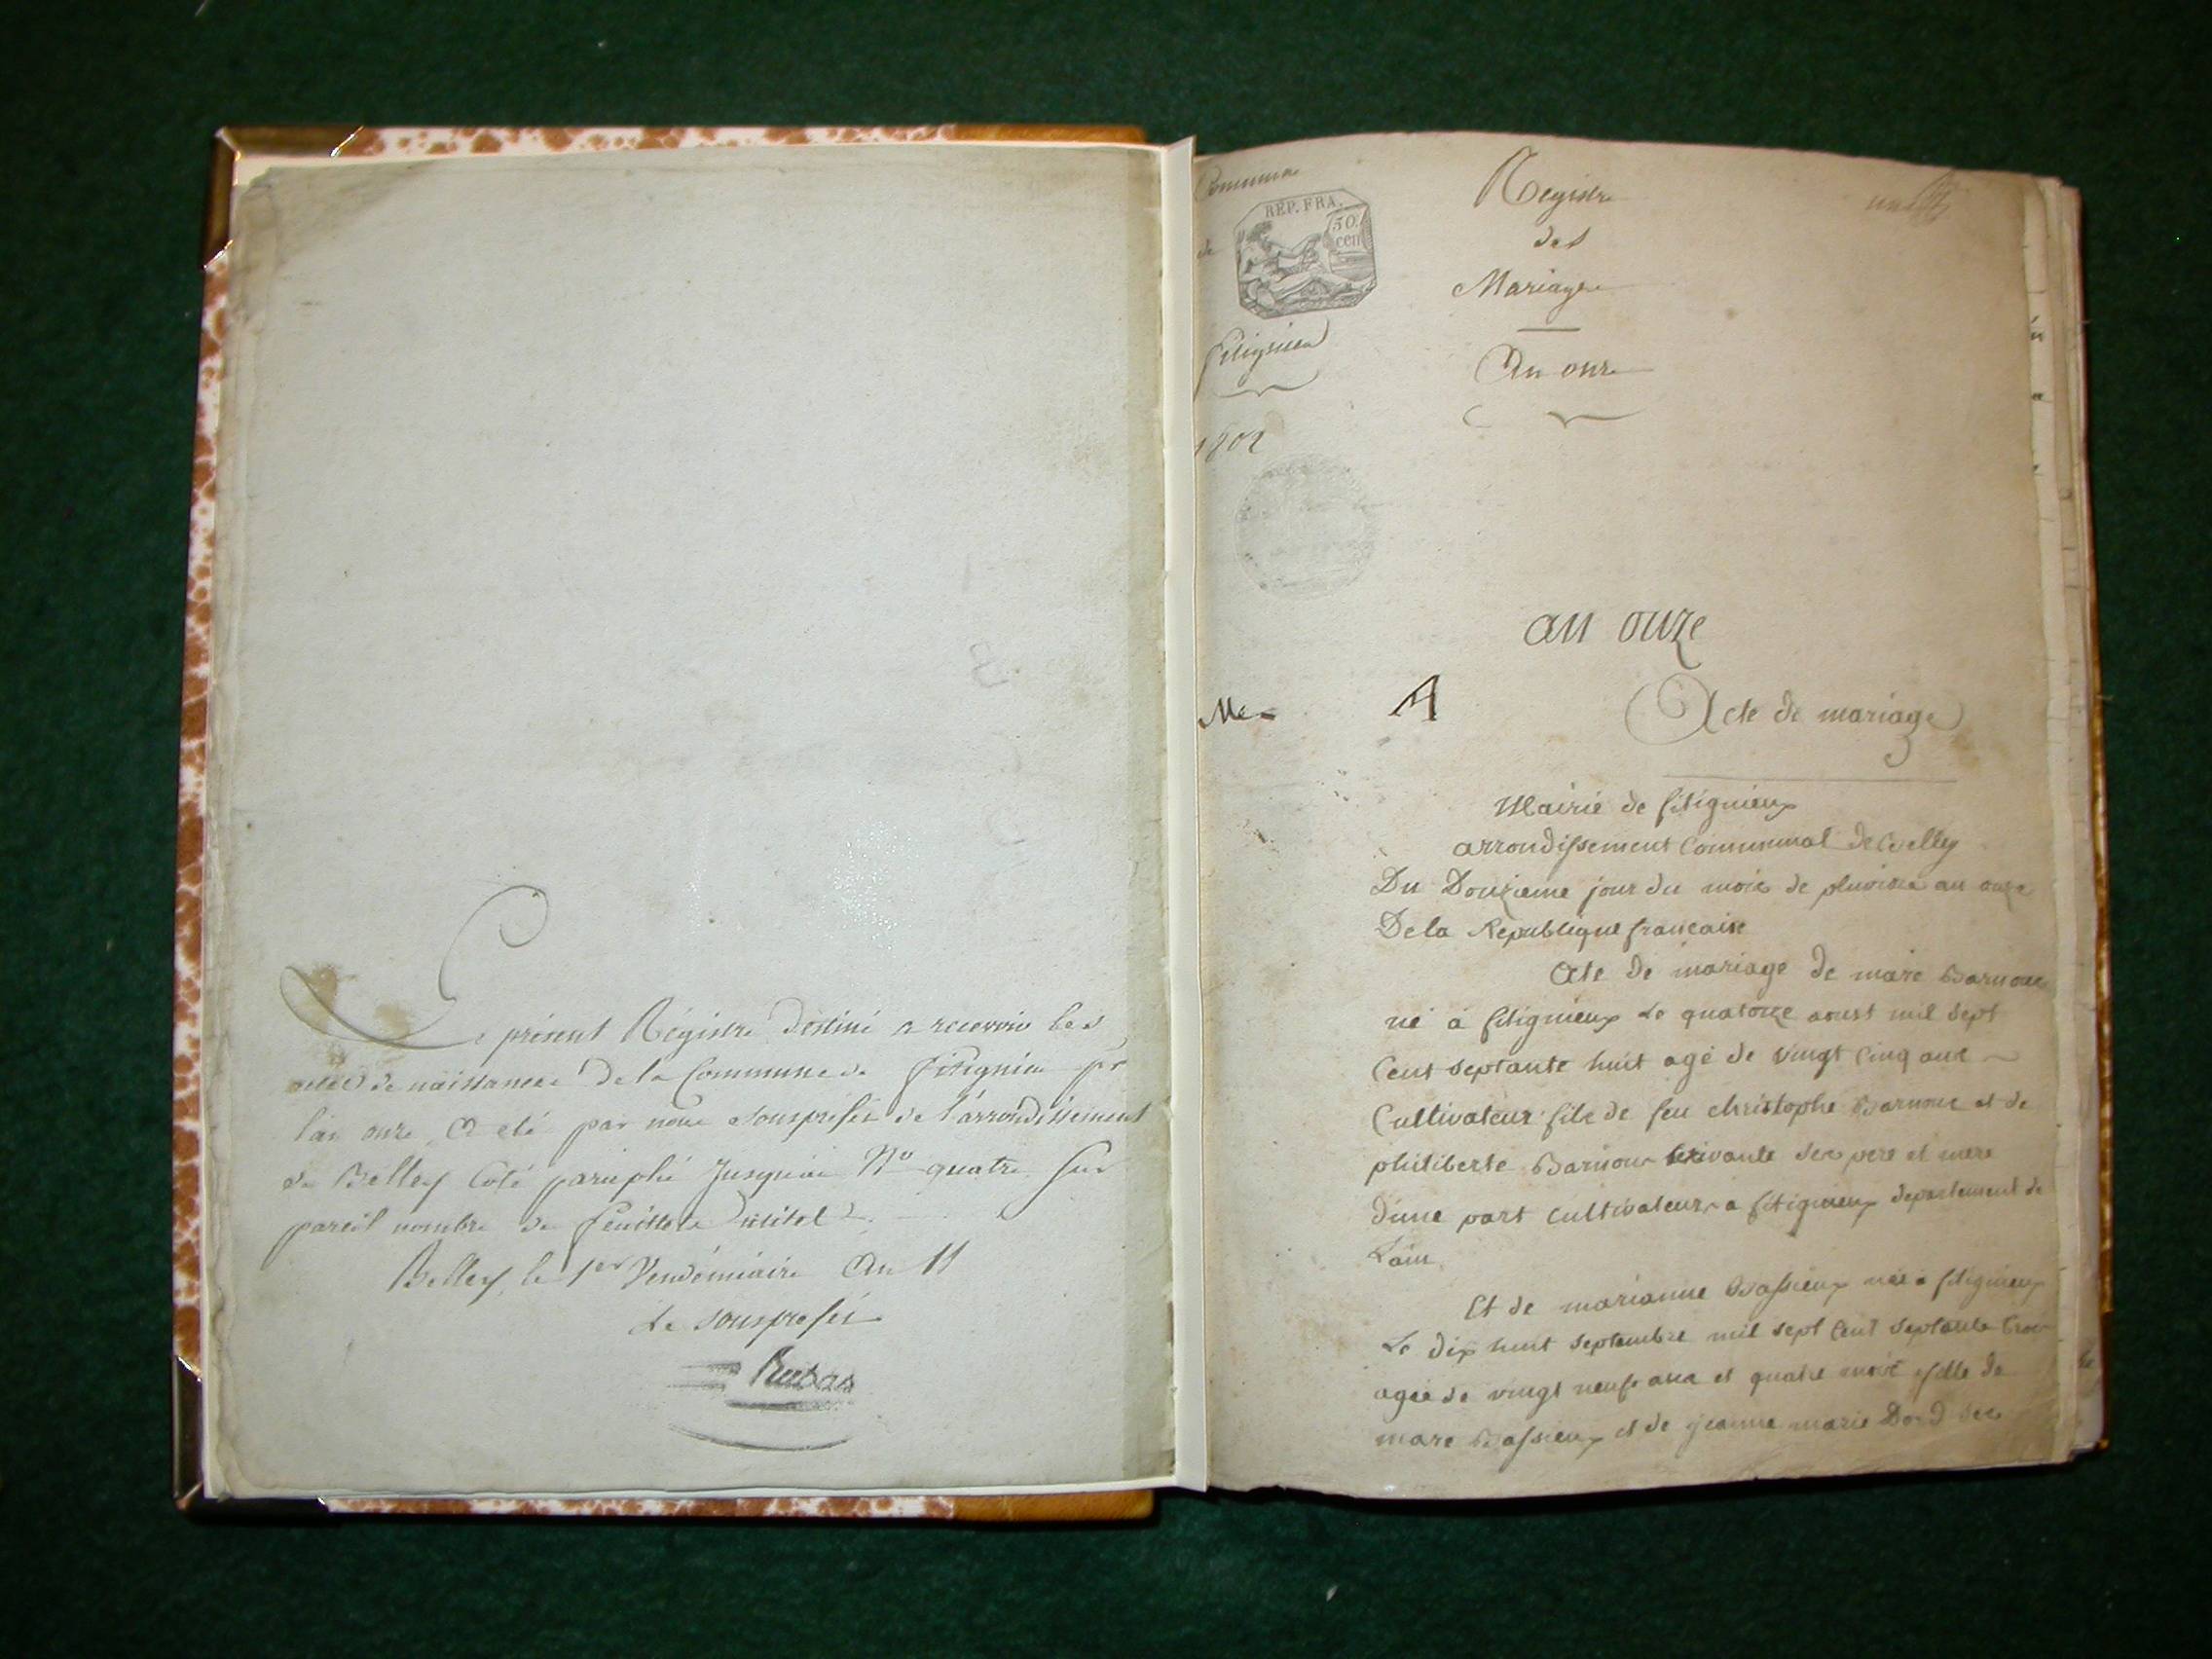 Le présent Régistre destiné a recevoir les
actes de naissances de la Commune de fitignieu pr
l'an onze, a eté par nous sousprefet de l'arrondissement
de Belley Coté paraphé Jusqu'au No quatre sur
pareil nombre de feuillets
Belley, le 1er Vendémiaire An 11
Le sousprefet
Commune
de
REP. FRA.
50
cen
fitignieu
1802
Registre
des
Mariages
An onze
an onze
A
Acte de mariage
Mairie de fitignieux
arrondissement Communal de Belley
Du Douzieme jour du mois de pluviose an onze
De la Republique francaise
Acte de mariage de marc Barnoux
né à fitignieux Le quatorze aoust mil sept
Cent septante huit agé de vingt cinq ans
Cultivateur fils de feu christophe Barnoux et de
philiberte Barnoux vivante ses pere et mere
d'une part cultivateurs a fitignieux departement de
L'ain
Et de marianne Bassieux née a fitignieux
Le dix huit septembre mil sept Cent septante trois
agée de vingt neuf ans et quatre mois fille de
marc Bassieux et de jeanne marie Dord ses